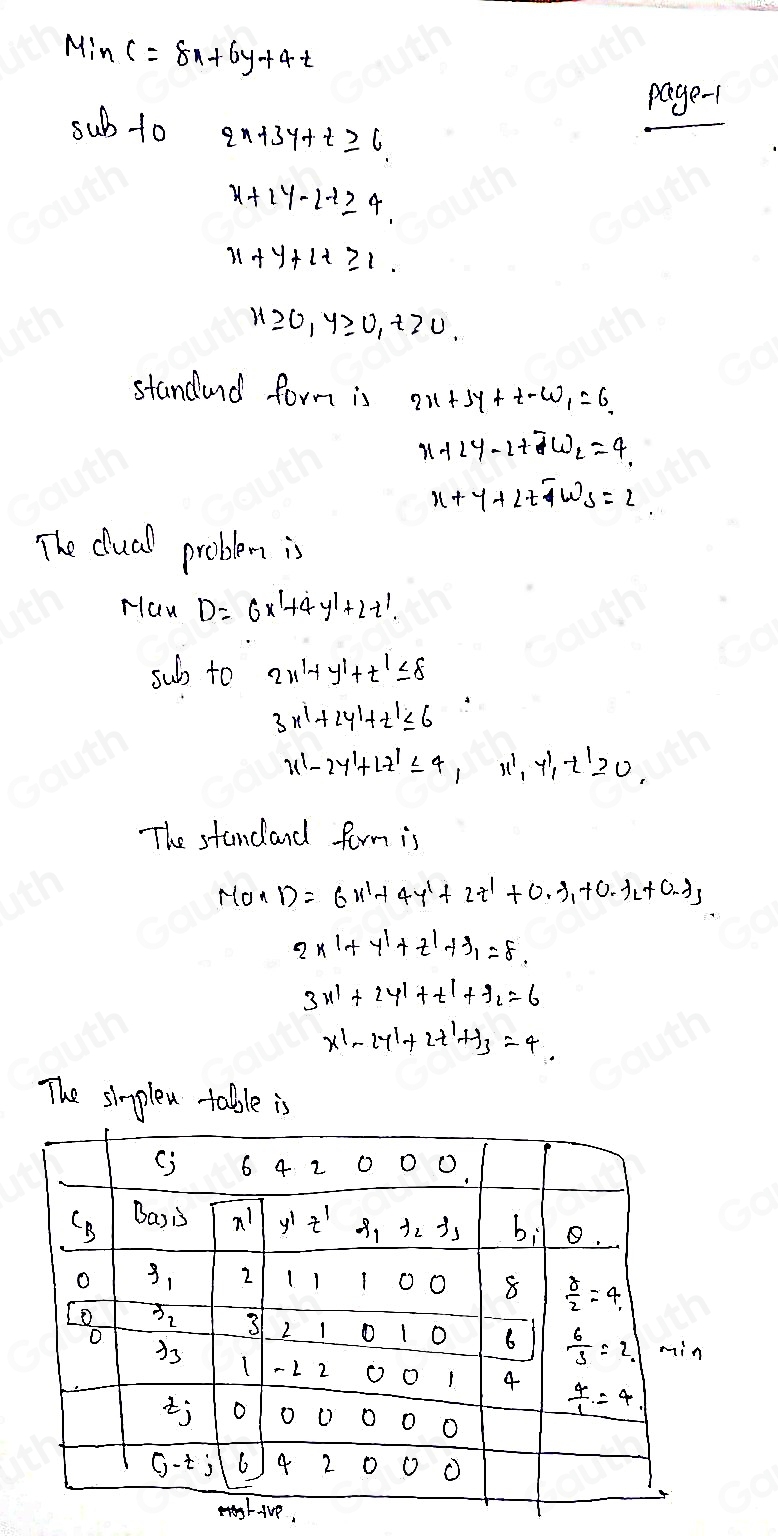 Min C = 8x+6y+4z
page-1
sub to 2x+3y+z ≥ 6.
x+2y-2z ≥ 4.
x+y+2z ≥ 2.
x≥0, y≥0, z≥0.
standard form is 2x+3y+z-w₁=6.
x+2y-2z-w₂=4.
x+y+2z-w₃=2.
The dual problem is
Max D= 6x'+4y'+2z'.
sub to 2x'+y'+z' ≤8
3x'+2y'+z' ≤6
x'-2y'+2z' ≤ 4, x', y', z' ≥0.
The standard form is
Max D= 6x'+4y'+2z'+0.s₁+0.s₂+0.s₃
2x'+y'+z'+s₁=8.
3x'+2y'+z'+s₂=6
x'-2y'+2z'+s₃=4.
The simplex table is
Cj 6 4 2 0 0 0.
C_B Basis x' y' z' s₁ s₂ s₃ bi θ.
0 s₁ 2 1 1 1 0 0 8 8/2=4.
0 s₂ 3 2 1 0 1 0 6 6/3=2. min
0 s₃ 1 -2 2 0 0 1 4 4/1=4.
zj 0 0 0 0 0 0
Cj-zj 6 4 2 0 0 0
most +ve.